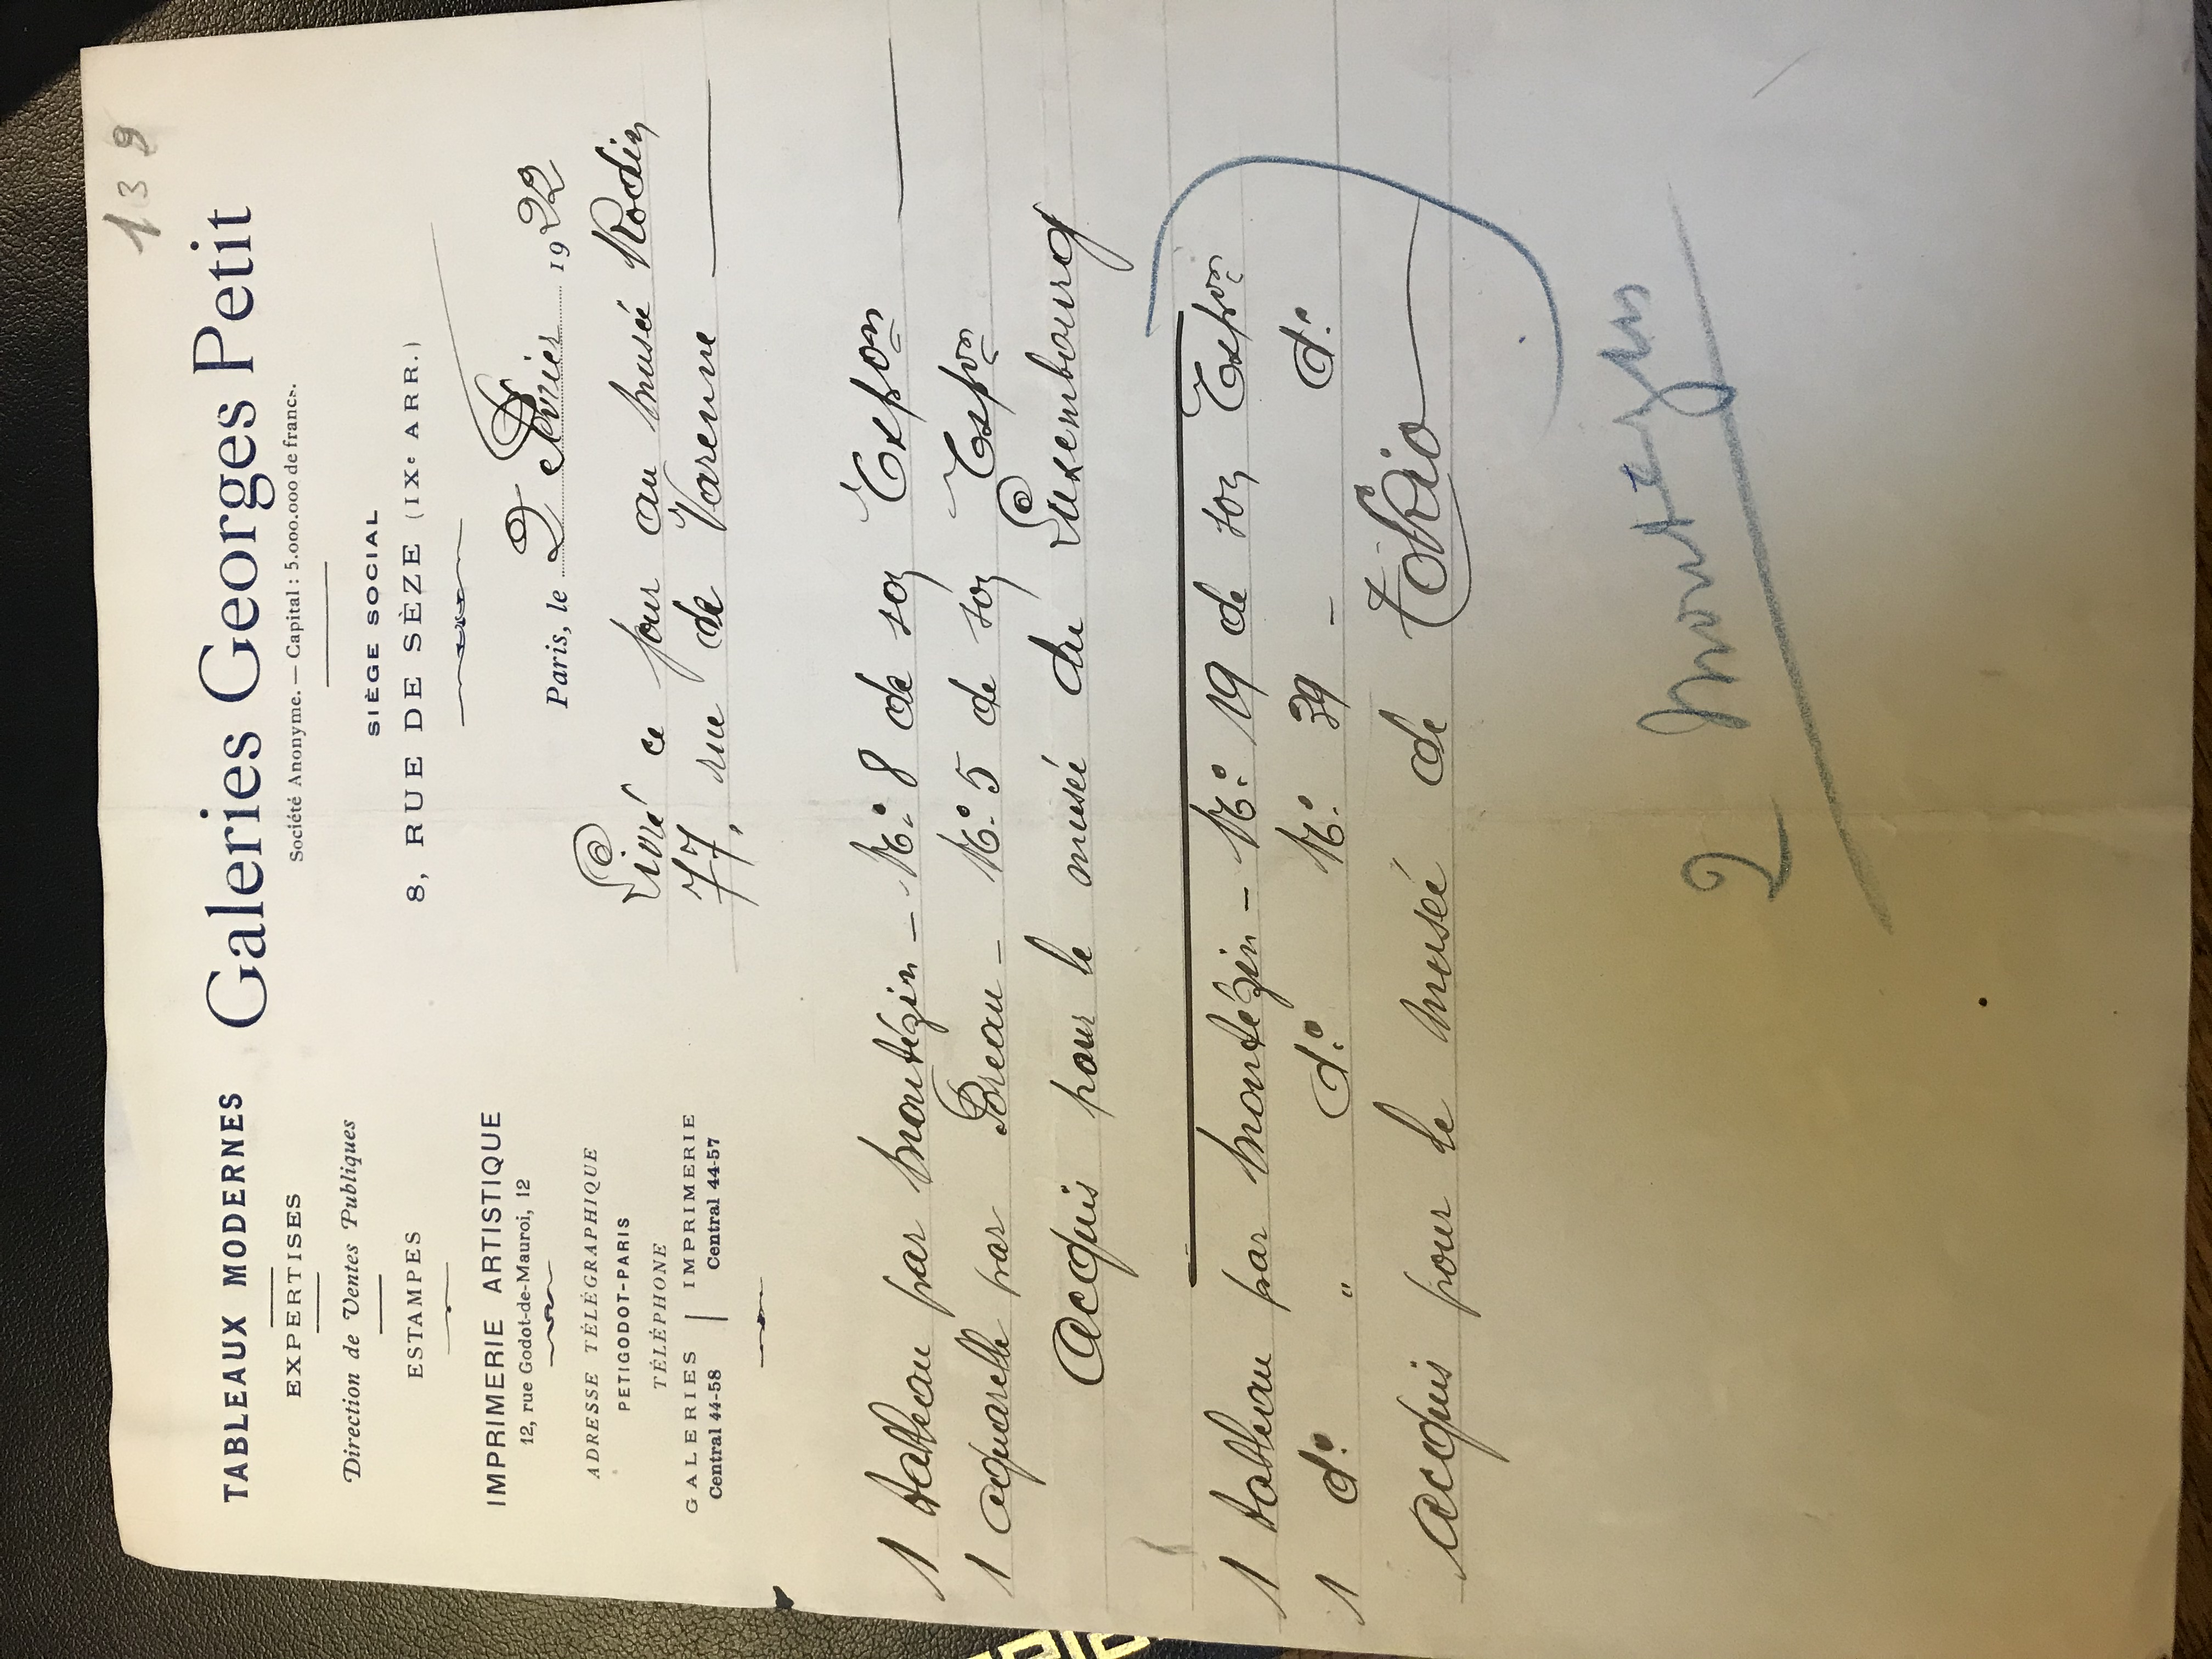 139
TABLEAUX MODERNES
EXPERTISES
Direction de Ventes Publiques
ESTAMPES
IMPRIMERIE ARTISTIQUE
12, rue Godot-de-Mauroi, 12
ADRESSE TÉLÉGRAPHIQUE
PETIGODOT-PARIS
TÉLÉPHONE
GALERIES | IMPRIMERIE
Central 44-58 Central 44-57
Galeries Georges Petit
Société Anonyme. — Capital : 5.000.000 de francs.
SIÈGE SOCIAL
8, RUE DE SÈZE (IXe ARR.)
Paris, le 2 Février 1922
Livré ce jour au Musée Rodin
77, rue de Varenne
1 tableau par Montézin – No: 8 de son Expon
1 aquarelle par Breau – No: 5 de son Expon
Acquis pour le musée du Luxembourg
1 tableau par Montézin – No: 19 de son Expon
1 do: " do: No: 39 – do:
Acquis pour le Musée de Tokio
2 Montezin